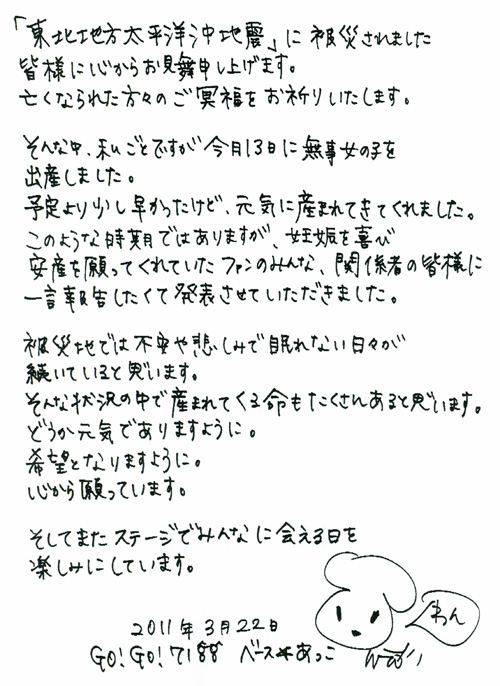 「東北地方太平洋沖地震」に被災されました
皆様に心からお見舞申し上げます。
亡くなられた方々のご冥福をお祈りいたします。
そんな中、私ごとですが今月13日に無事女の子を
出産しました。
予定より少し早かったけど、元気に産まれてきてくれました。
このような時期ではありますが、妊娠を喜び
安産を願ってくれていたファンのみんな、関係者の皆様に
一言報告したくて発表させていただきました。
被災地では不安や悲しみで眠れない日々が
続いていると思います。
そんな状況の中で産まれてくる命もたくさんあると思います。
どうか元気でありますように。
希望となりますように。
心から願っています。
そしてまたステージでみんなに会える日を
楽しみにしています。
わん
2011年3月22日
GO!GO!7188 ベース★あっこ